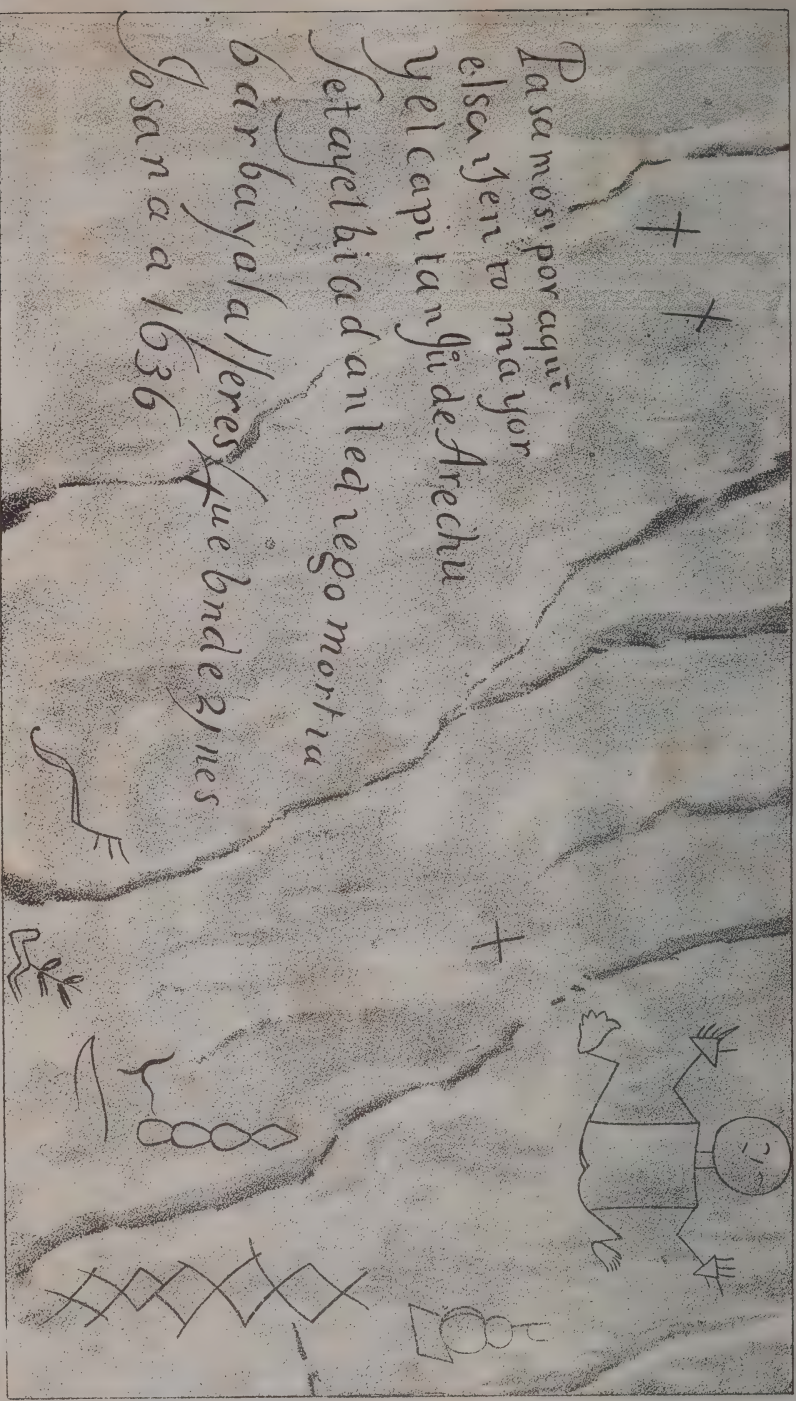 Pasamos por aquī
elsa yen to mayor
yelcapitan Jũ de Arechu
fetayelbiadanledıego mortıa
barbayalalferes quebndezınes
Josana a 1636